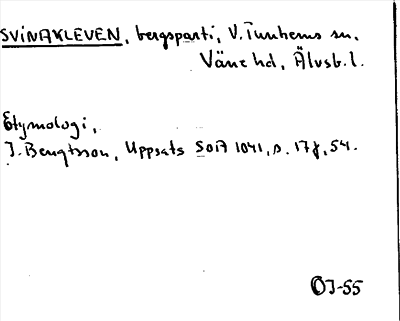 SVINAKLEVEN, bergsparti, V. Tunhems sn,
Väne hd, Älvsb. l.
Etymologi,
J. Bengtsson, Uppsats SOIA 1041, s. 17f, 54.
OJ-55